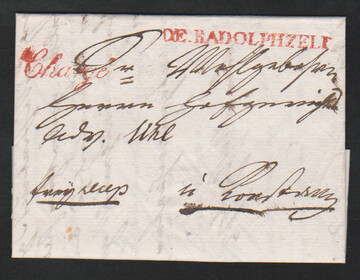 DE.RADOLPHZELL
Chargé
Sr Wohlgebohrn
Herrn Hofgerichts
Adv. Uhl
in Constanz